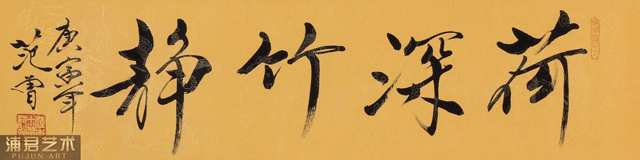 荷深竹静
庚寅年
范曾
浦君艺术
PUJUN ART